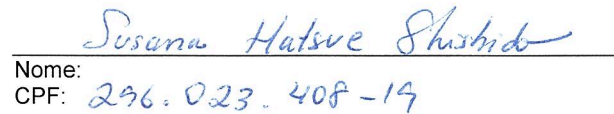 Susana Hatsue Shishido
Nome:
CPF: 296.023.408-19